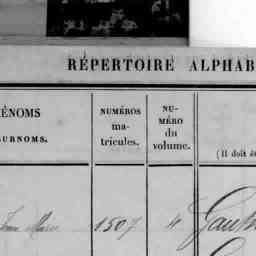 RÉPERTOIRE ALPHAB
ÉNOMS
URNOMS.
NUMÉROS
ma-
tricules.
NU-
MÉRO
du
volume.
(Il doit é
Jean Marie 1507 4 Gauth